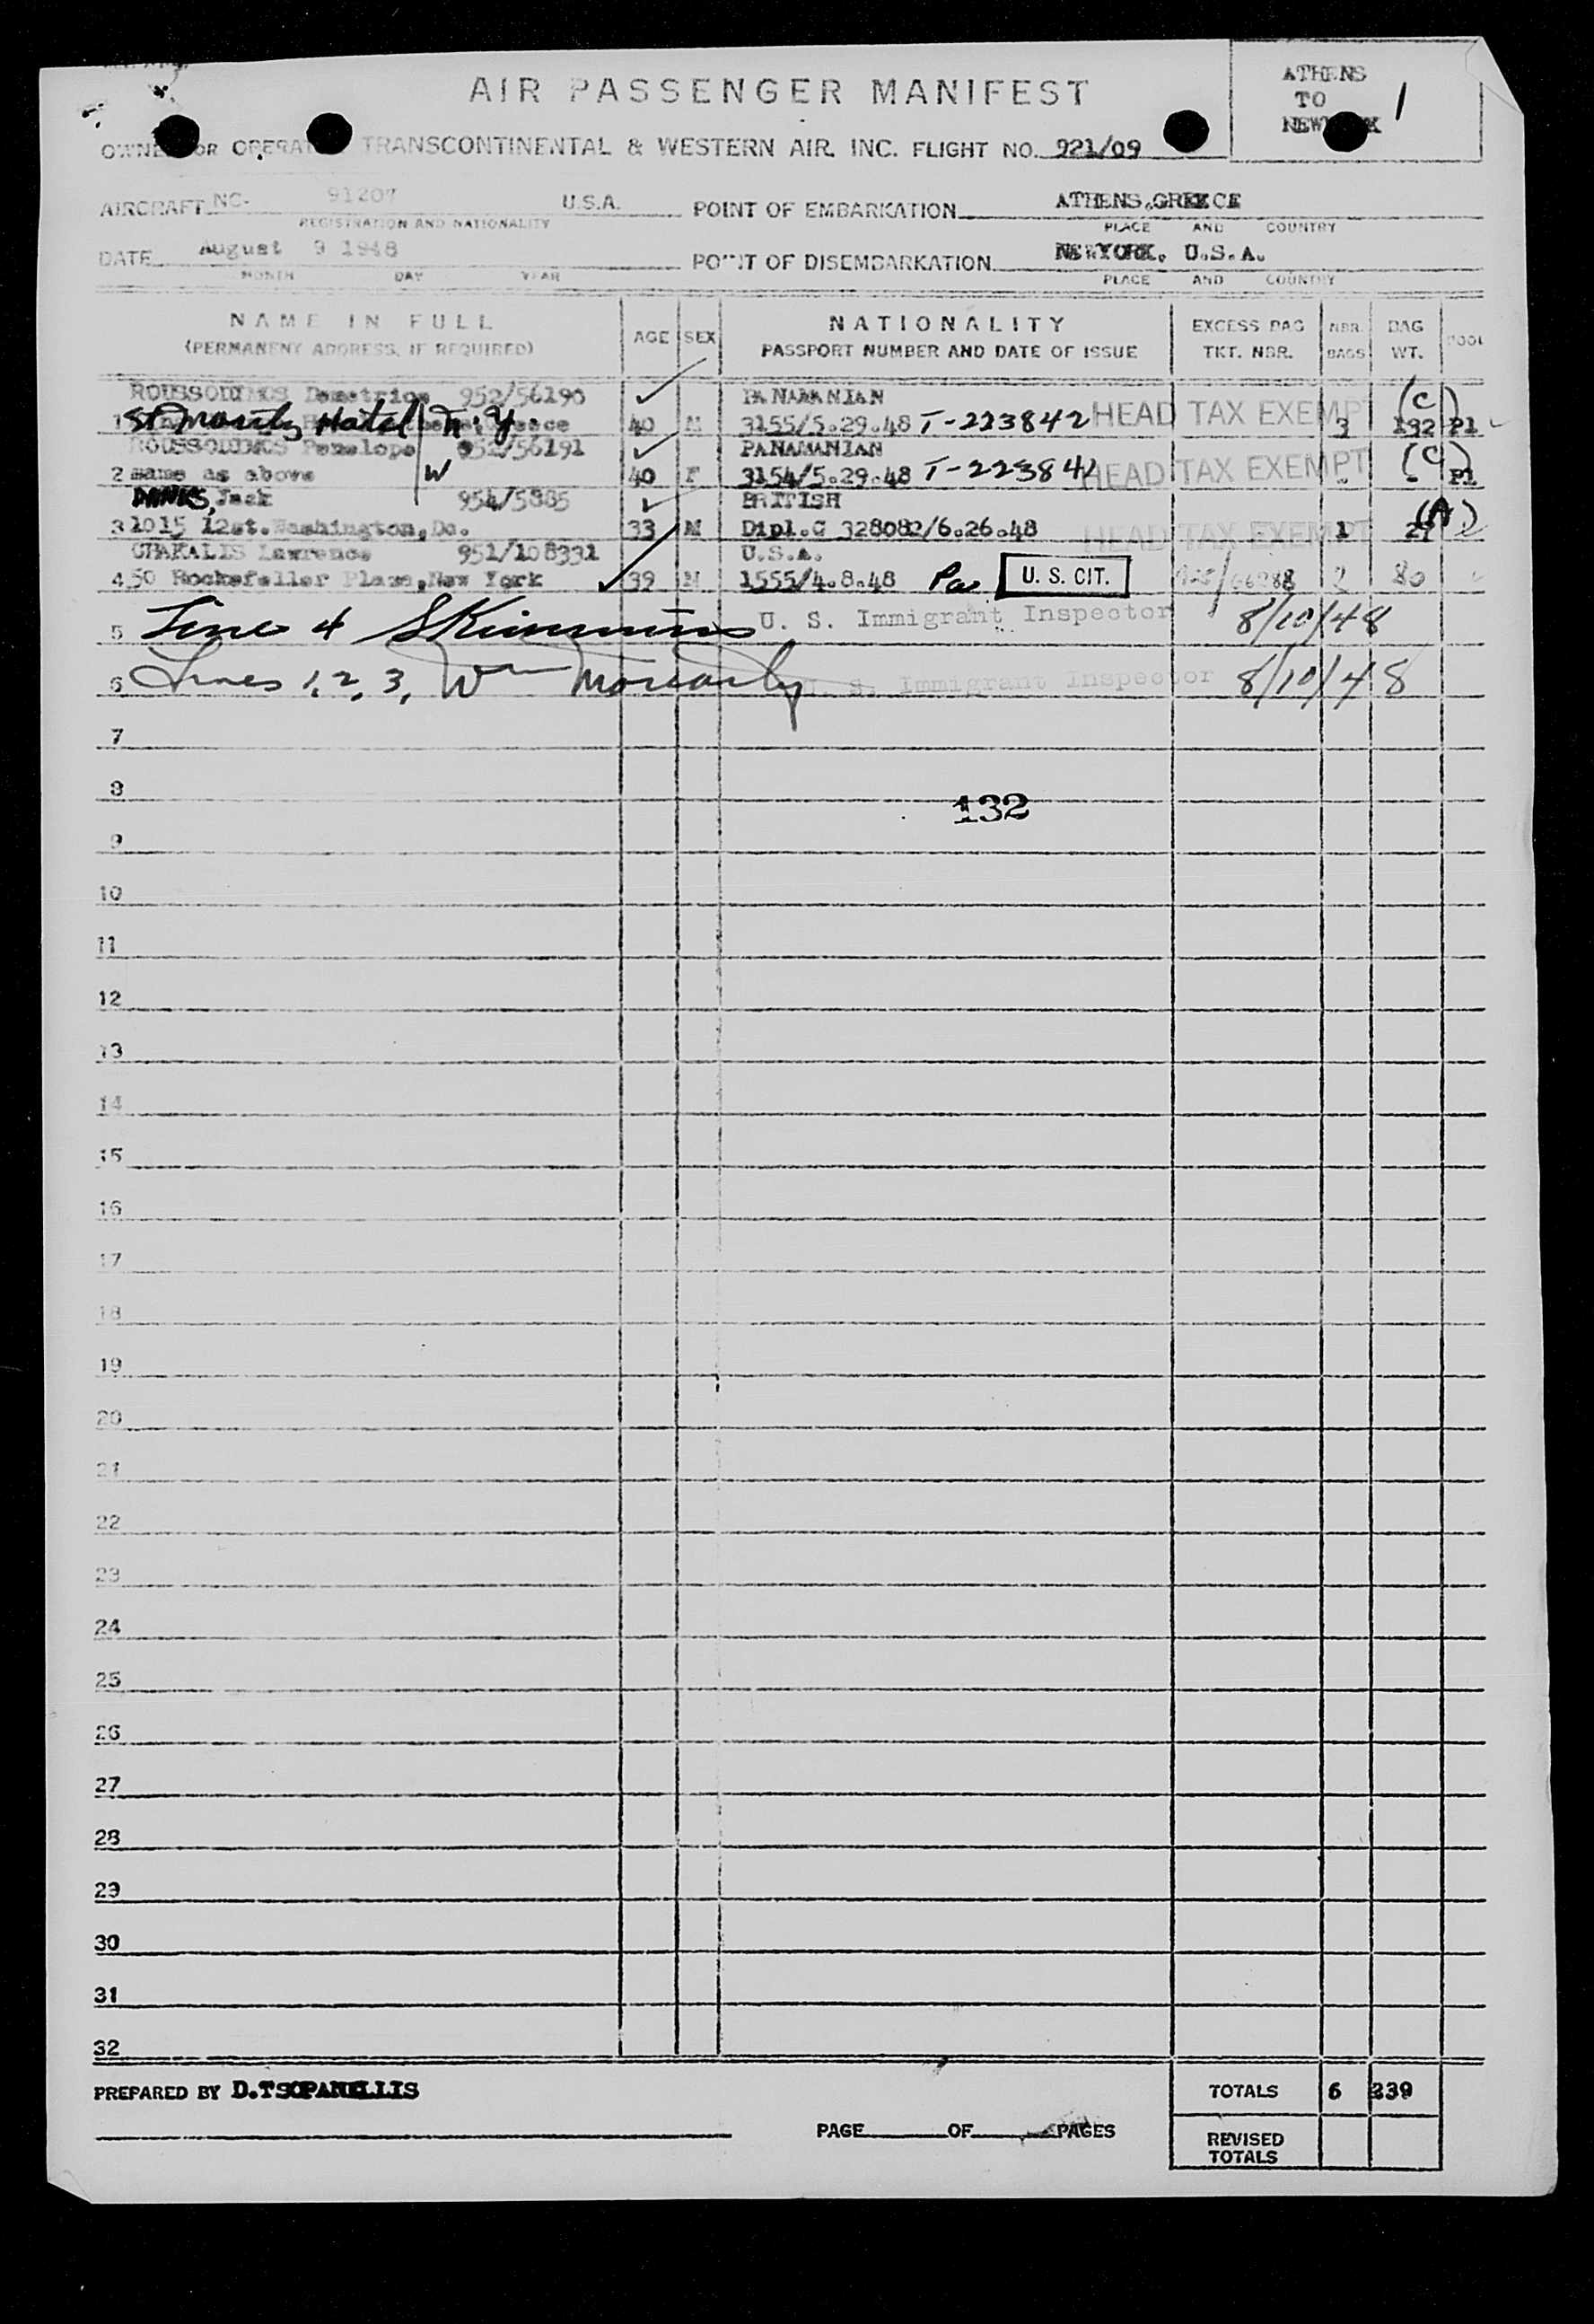 AIR PASSENGER MANIFEST
ATHENS
TO 1
NEW
OWNE OR OPERAT TRANSCONTINENTAL & WESTERN AIR. INC. FLIGHT NO. 921/09
AIRCRAFT NC- 91207 U.S.A. POINT OF EMBARKATION ATHENS, GREECE
REGISTRATION AND NATIONALITY PLACE AND COUNTRY
DATE August 9 1948 POINT OF DISEMBARKATION NEWYORK, U.S.A.
MONTH DAY YEAR PLACE AND COUNTRY
NAME IN FULL AGE SEX NATIONALITY EXCESS BAG NBR. BAG
(PERMANENT ADDRESS, IF REQUIRED) PASSPORT NUMBER AND DATE OF ISSUE TKT. NBR. BAGS WT.
ROUSSODIMOS Demetrios 952/56190 PANAMANIAN (C)
1 St Moritz Hotel N.Y. Greece 40 M 3155/5.29.48 T-223842 HEAD TAX EXEMPT 3 132 P1
ROUSSODIMOS Penelope 952/56191 PANAMANIAN (C)
2 same as above W 40 F 3154/5.29.48 T-223841 HEAD TAX EXEMPT - - P1
DANKS, Jack 954/5885 BRITISH (A)
3 1015 12st. Washington, Dc. 33 M Dipl.C 328082/6.26.48 HEAD TAX EXEMPT 1 27
CHAKALIS Lawrence 951/108331 U.S.A.
4 50 Rockefeller Plaza, New York 39 M 1555/4.8.48 U. S. CIT. 2 80
5 Line 4 Skimmins U. S. Immigrant Inspector 8/10/48
6 Lines 1, 2, 3, Wm Moriarty U. S. Immigrant Inspector 8/10/48
7
8 132
9
10
11
12
13
14
15
16
17
18
19
20
21
22
23
24
25
26
27
28
29
30
31
32
PREPARED BY D.TSOPANELLIS TOTALS 6 239
PAGE OF PAGES REVISED
TOTALS